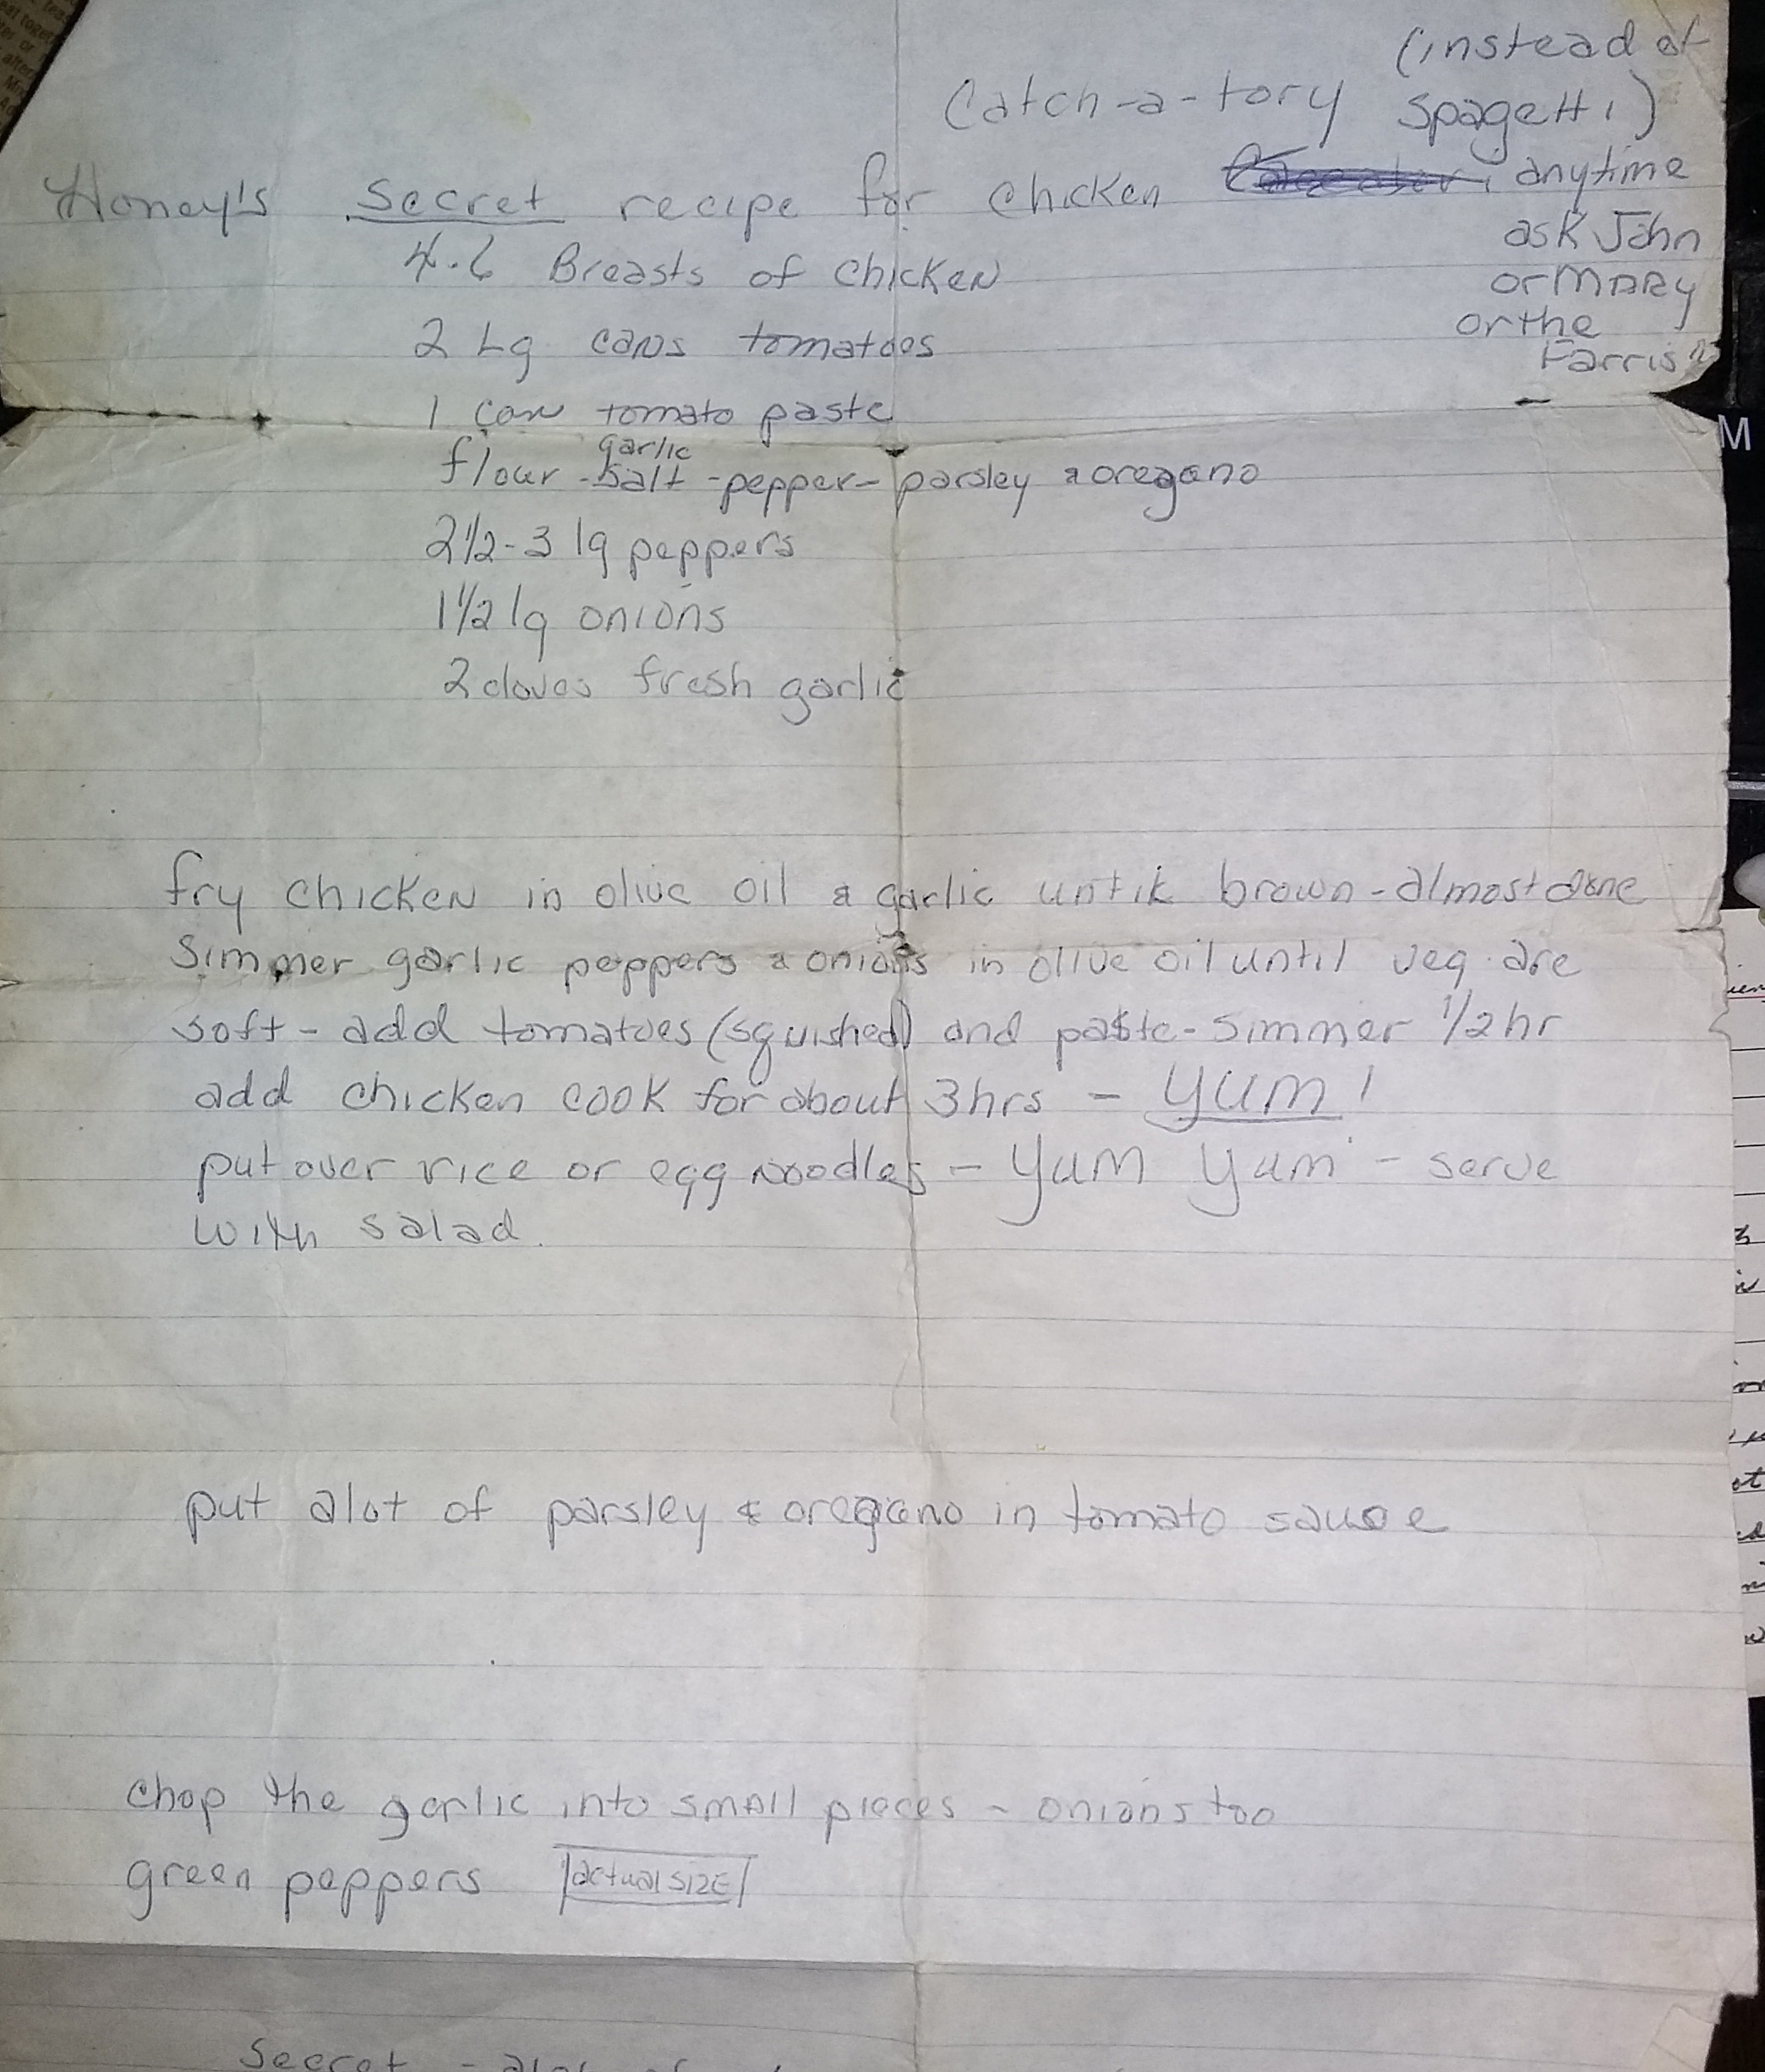 (instead of
Catch-a-tory spagetti)
Honey's secret recipe for chicken anytime
ask John
or MARY
or the
Farris
4-6 Breasts of Chicken
2 Lg cans tomatoes
1 can tomato paste
garlic
flour - salt - pepper - parsley & oregano
2 1/2 - 3 lg peppers
1 1/2 lg onions
2 cloves fresh garlic
fry chicken in olive oil & garlic until brown - almost done
simmer garlic peppers & onions in olive oil until veg. are
soft - add tomatoes (squished) and paste - simmer 1/2 hr
add chicken cook for about 3 hrs - YUM!
put over rice or egg noodles - Yum Yum - serve
with salad.
put alot of parsley & oregano in tomato sause
chop the garlic into small pieces - onions too
green peppers actual SIZE
Secret - alot of
M